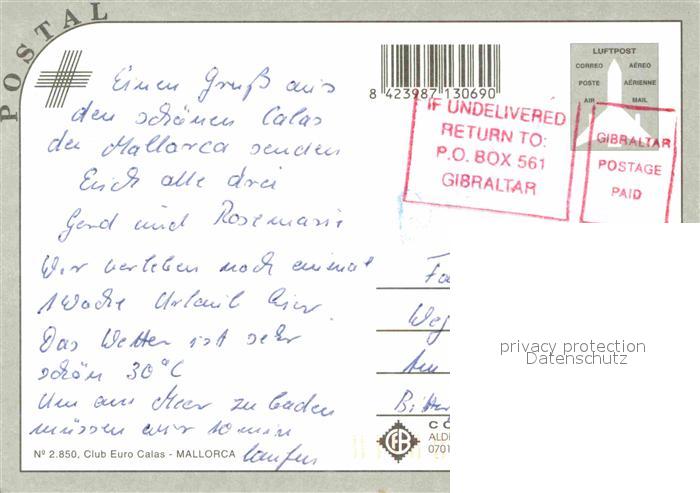 POSTAL
Einen Gruß aus
den schönen Calas
de Mallorca senden
Euch alle drei
Gerd und Rosemarie
Wir verleben noch einmal
1 Woche Urlaub hier.
Das Wetter ist sehr
schön 30°C
Um am Meer zu baden
müssen wir 10 min
laufen
Nº 2.850, Club Euro Calas - MALLORCA
8 423987 130690
LUFTPOST
CORREO AÉREO
POSTE AÉRIENNE
AIR MAIL
IF UNDELIVERED
RETURN TO:
P.O. BOX 561
GIBRALTAR
GIBRALTAR
POSTAGE
PAID
Fa
Weg
Am
Bitter
privacy protection
Datenschutz
CB
ALD
0701